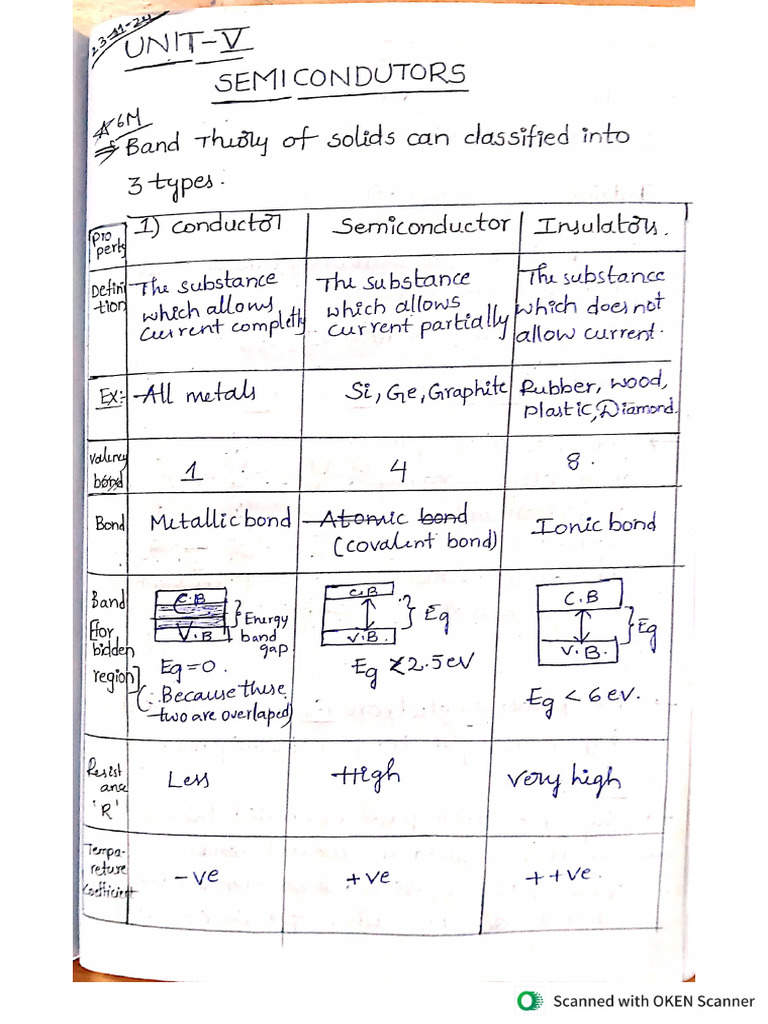 23-11-24
UNIT-V
SEMICONDUTORS
6M
Band Theory of solids can classified into
3 types.
Pro
perty
1) conductor
Semiconductor
Insulators.
Defini
tion
The substance
which allows
current completly
The substance
which allows
current partially
The substance
which does not
allow current.
Ex:-
All metals
Si, Ge, Graphite
Rubber, wood,
plastic, Diamond.
Valency
bond
1
4
8.
Bond
Metallic bond
Atomic bond
(covalent bond)
Ionic bond
Band
[for
bidden
region]
C.B
V.B
Energy
band
gap
Eg=0.
(∴ Because these
two are overlaped)
C.B
V.B.
Eg
Eg <2.5ev
C.B
V.B.
Eg
Eg < 6ev.
Resist
ance
'R'
Less
High
Very high
Tempa-
reture
Coefficient
-ve
+ve.
++ve.
Scanned with OKEN Scanner